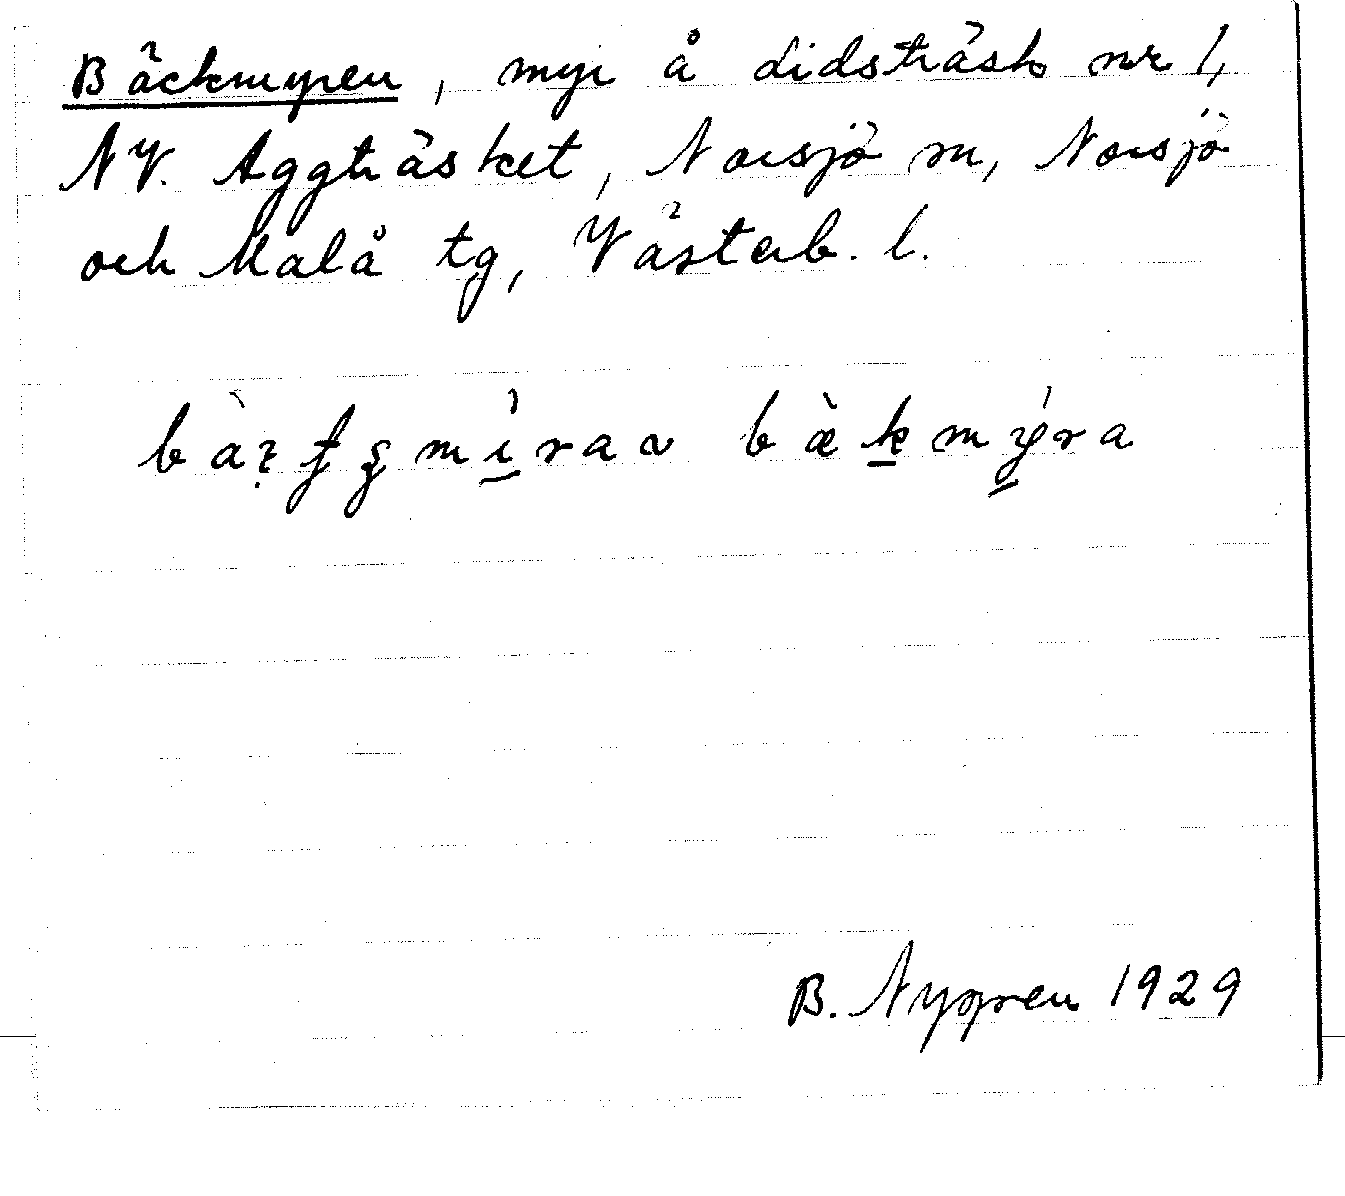 Bäckmyren, myr å Lidsträsk nr 1,
NV. Aggträsket, Norsjö sn, Norsjö
och Malå tg, Västerb. l.
B. Nygren 1929